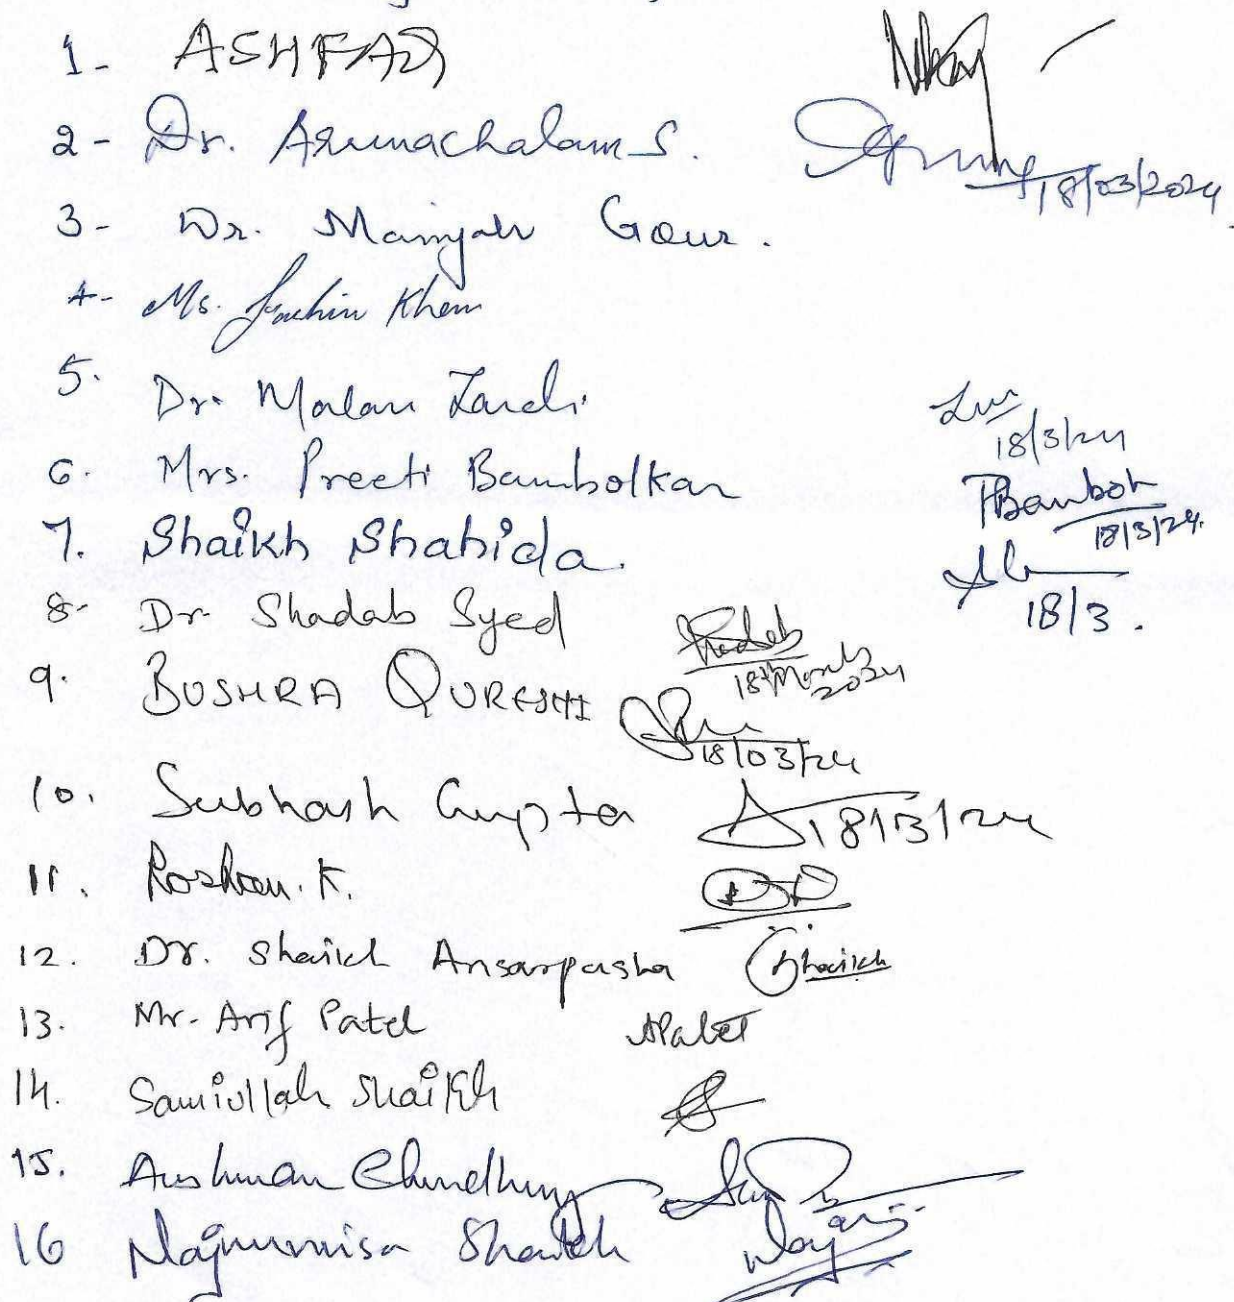 1- ASHFAQ
2- Dr. Arunachalam S. 18/03/2024
3- Dr. Gour.
4- Ms. Khan
5. Dr. Malan Zardi 18/3/24
6. Mrs. Preeti Bambolkar PBambol 18/3/24.
7. Shaikh Shahida. 18/3.
8- Dr Shadab Syed Shadab 18th March 2024
9. BUSHRA QURESHI 18/03/24
10. Subhash Gupta 18/3/24
11. Roshan. K.
12. Dr. Shaikh Ansarpasha Shaikh
13. Mr. Arif Patel APatel
14. Samiullah Shaikh
15. Anshuman Chaudhury
16 Najmunnisa Shaikh Naj